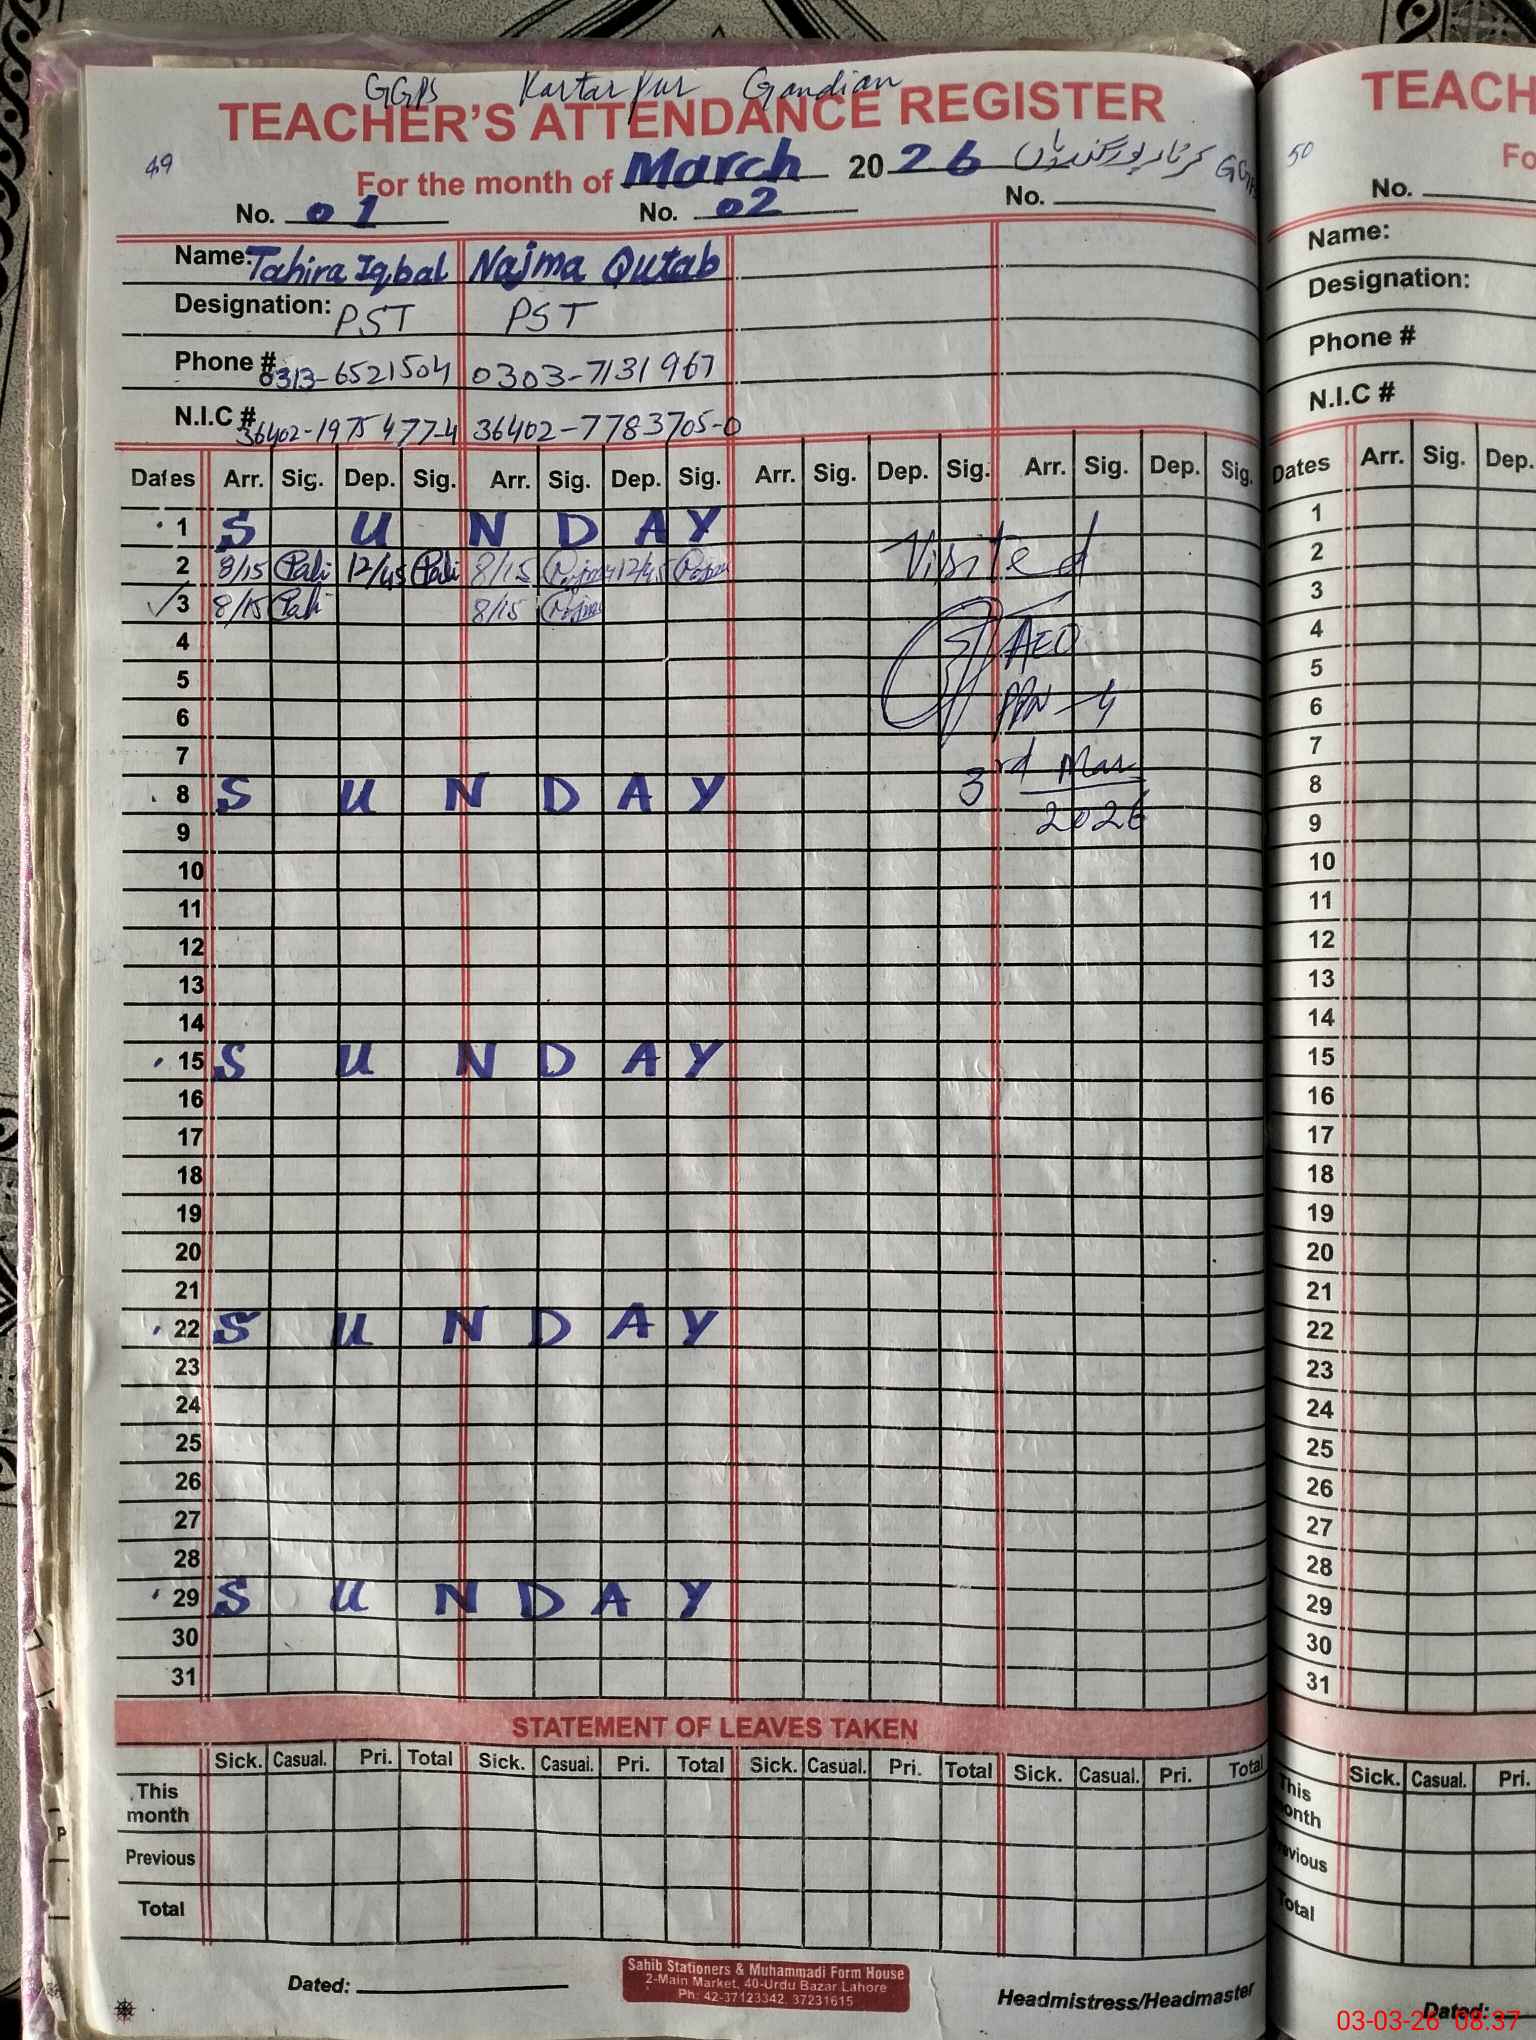 GGPS Kartarpur Gandian
TEACHER'S ATTENDANCE REGISTER
49
For the month of March 2026 کرتارپور گندیاں GGPS
No. 01 No. 02 No.
Name: Tahira Iqbal Najma Qutab
Designation: PST PST
Phone # 0313-6521504 0303-7131967
N.I.C # 36402-1975477-4 36402-7783705-0
Dates Arr. Sig. Dep. Sig. Arr. Sig. Dep. Sig. Arr. Sig. Dep. Sig. Arr. Sig. Dep. Sig.
1 S U N D A Y
2 8/15 12/45 8/15 12/45
3 8/15 8/15
4
5
6
7
8 S U N D A Y
9
10
11
12
13
14
15 S U N D A Y
16
17
18
19
20
21
22 S U N D A Y
23
24
25
26
27
28
29 S U N D A Y
30
31
Visited
AEO
3rd Mar
2026
STATEMENT OF LEAVES TAKEN
Sick. Casual. Pri. Total Sick. Casual. Pri. Total Sick. Casual. Pri. Total Sick. Casual. Pri. Total
This month
Previous
Total
Dated:
Sahib Stationers & Muhammadi Form House
2-Main Market, 40-Urdu Bazar Lahore
Ph: 42-37123342, 37231615
Headmistress/Headmaster
TEACH
50
Fo
No.
Name:
Designation:
Phone #
N.I.C #
Dates Arr. Sig. Dep.
1
2
3
4
5
6
7
8
9
10
11
12
13
14
15
16
17
18
19
20
21
22
23
24
25
26
27
28
29
30
31
Sick. Casual. Pri.
This
onth
evious
Total
Dated:
03-03-26 08:37